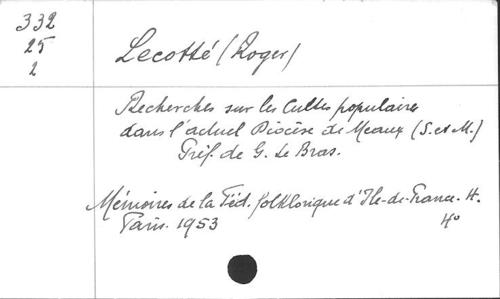 332
25
2
Lecotté (Roger)
Recherches sur les Cultes populaires
dans l'actuel Diocèse de Meaux (S. et M.)
Préf. de G. Le Bras.
Mémoires de la Féd. folklorique d'Ile-de-France. 4.
Paris. 1953
4°